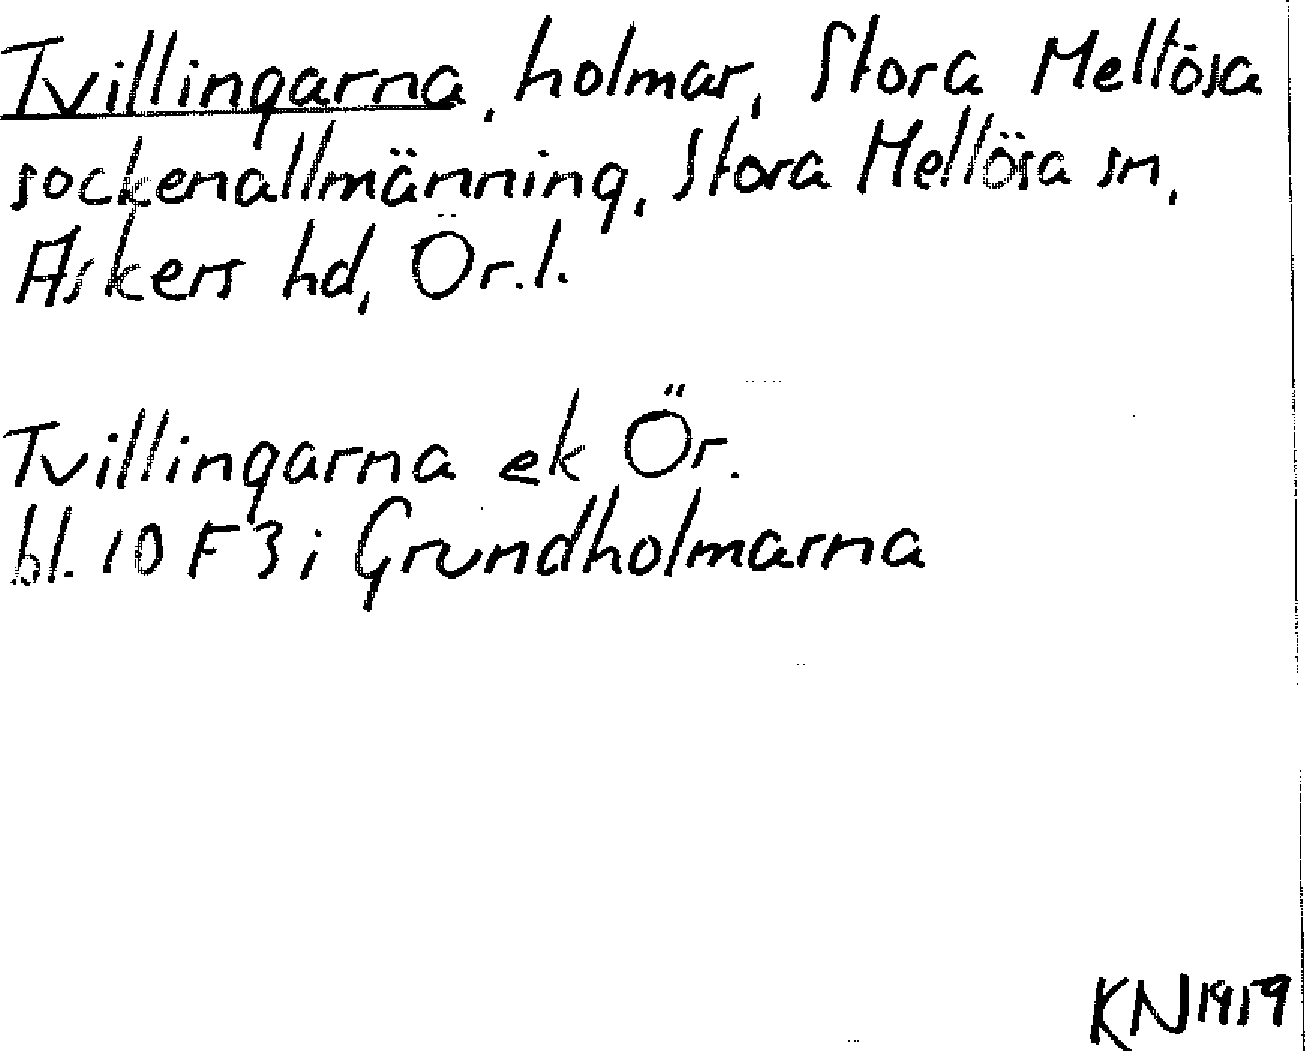 Tvillingarna, holmar, Stora Mellösa
sockenallmänning, Stora Mellösa sn,
Askers hd, Ör.l.
Tvillingarna ek Ör.
bl. 10 F 3 i Grundholmarna
KN 1959